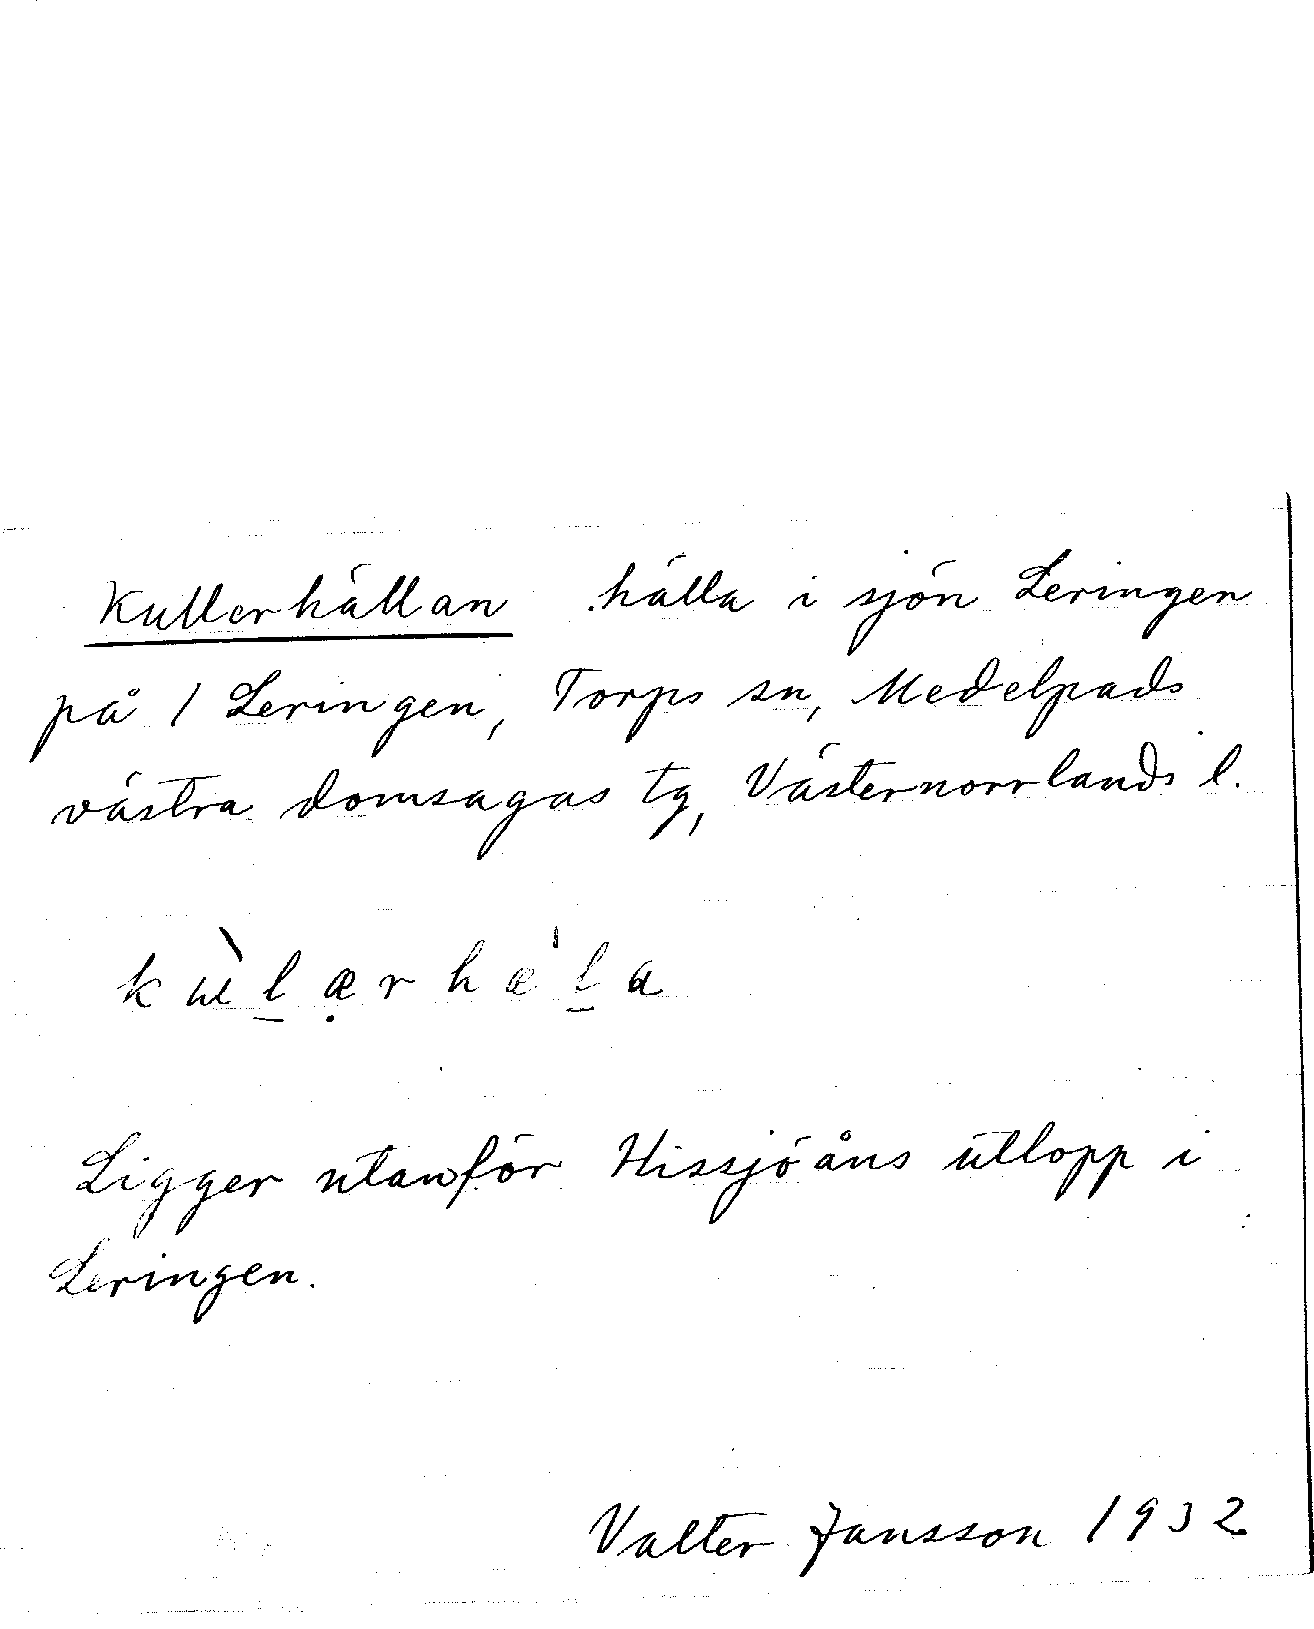 Kullerhällan hälla i sjön Leringen
på 1 Leringen, Torps sn, Medelpads
västra domsagas tg, Västernorrlands l.
kùl̠æ̣rhæ̍l̠a
Ligger utanför Hissjöåns utlopp i
Leringen.
Valter Jansson 1932